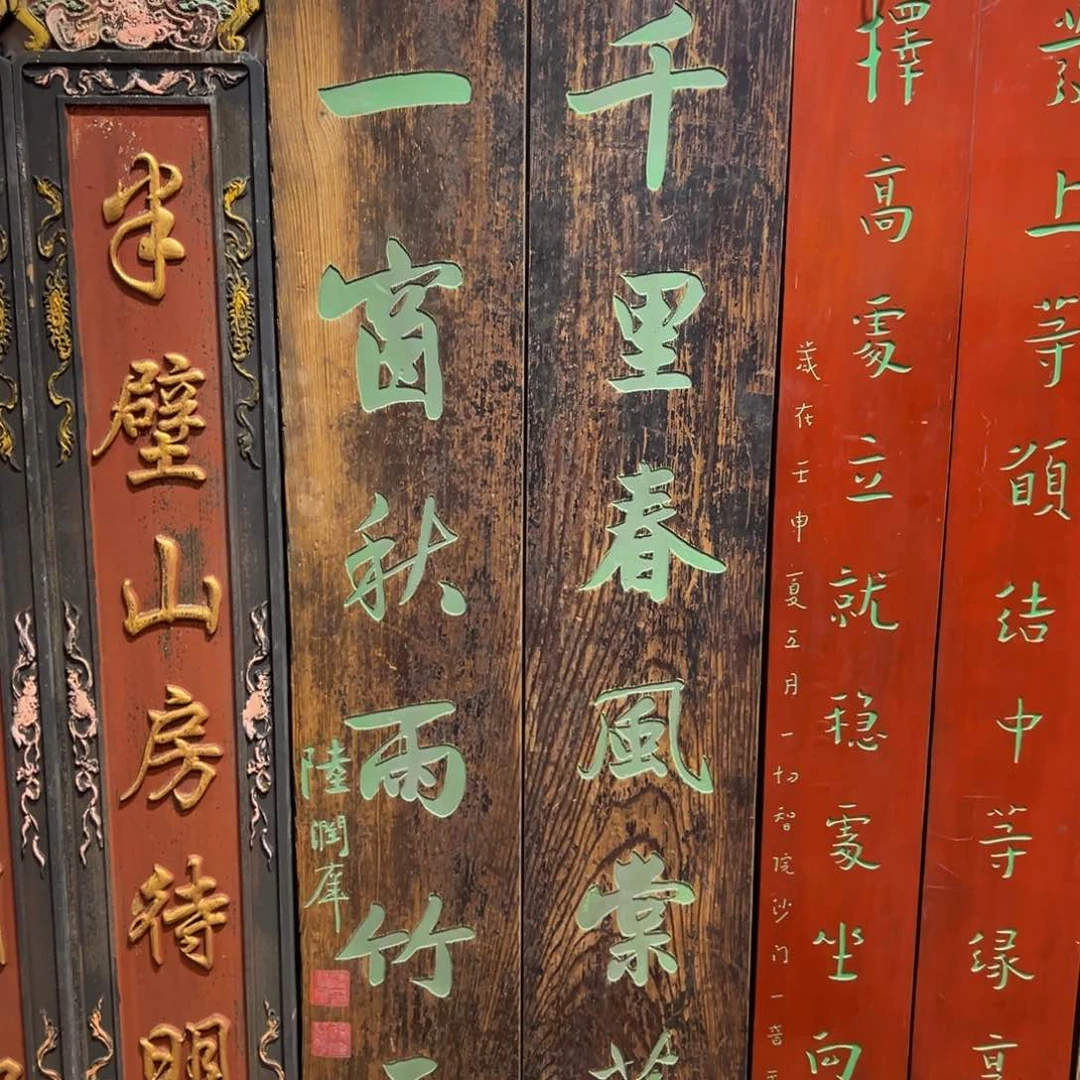 發上等願結中等緣享
擇高處立就穩處坐向
歲在壬申夏五月一切智院沙门一音
千里春風棠
一窗秋雨竹
陸潤庠
半壁山房待明